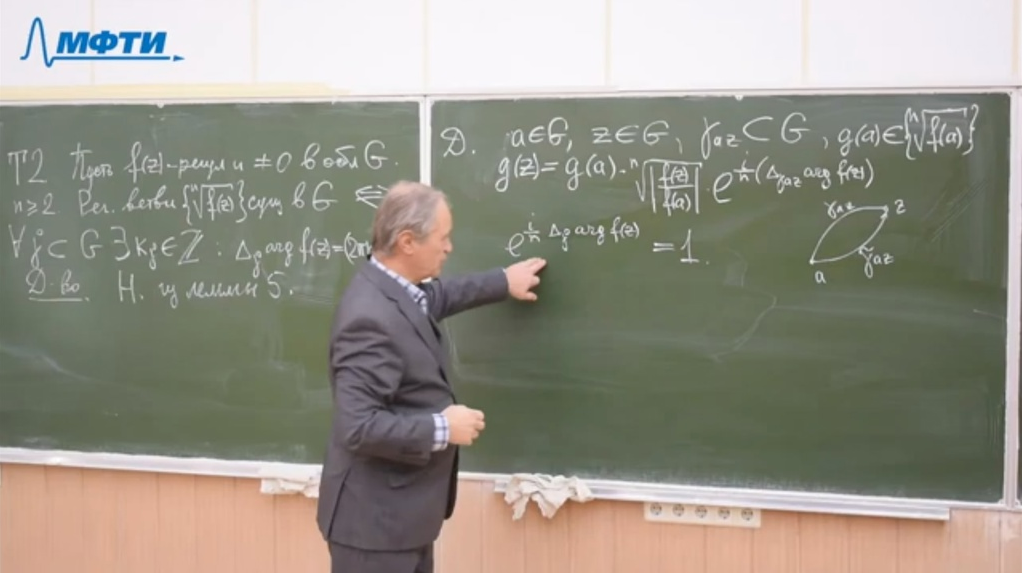 МФТИ
Т2 Пусть f(z)-регул и ≠0 в обл G.
n≥2. Рег. ветви {ⁿ√f(z)} сущ в G ⟺
∀ γ̊ ⊂ G ∃ kγ̊ ∈ ℤ : Δγ̊ arg f(z)=(2π
Д-во. Н. из леммы 5.
D. a∈G, z∈G, γaz⊂G, g(a)∈{ⁿ√f(a)}
g(z)=g(a)·ⁿ√|f(z)/f(a)| · e^{i/n(Δγaz arg f(z))}
e^{i/n Δγ̊ arg f(z)} = 1.
γaz z
a γ̃az